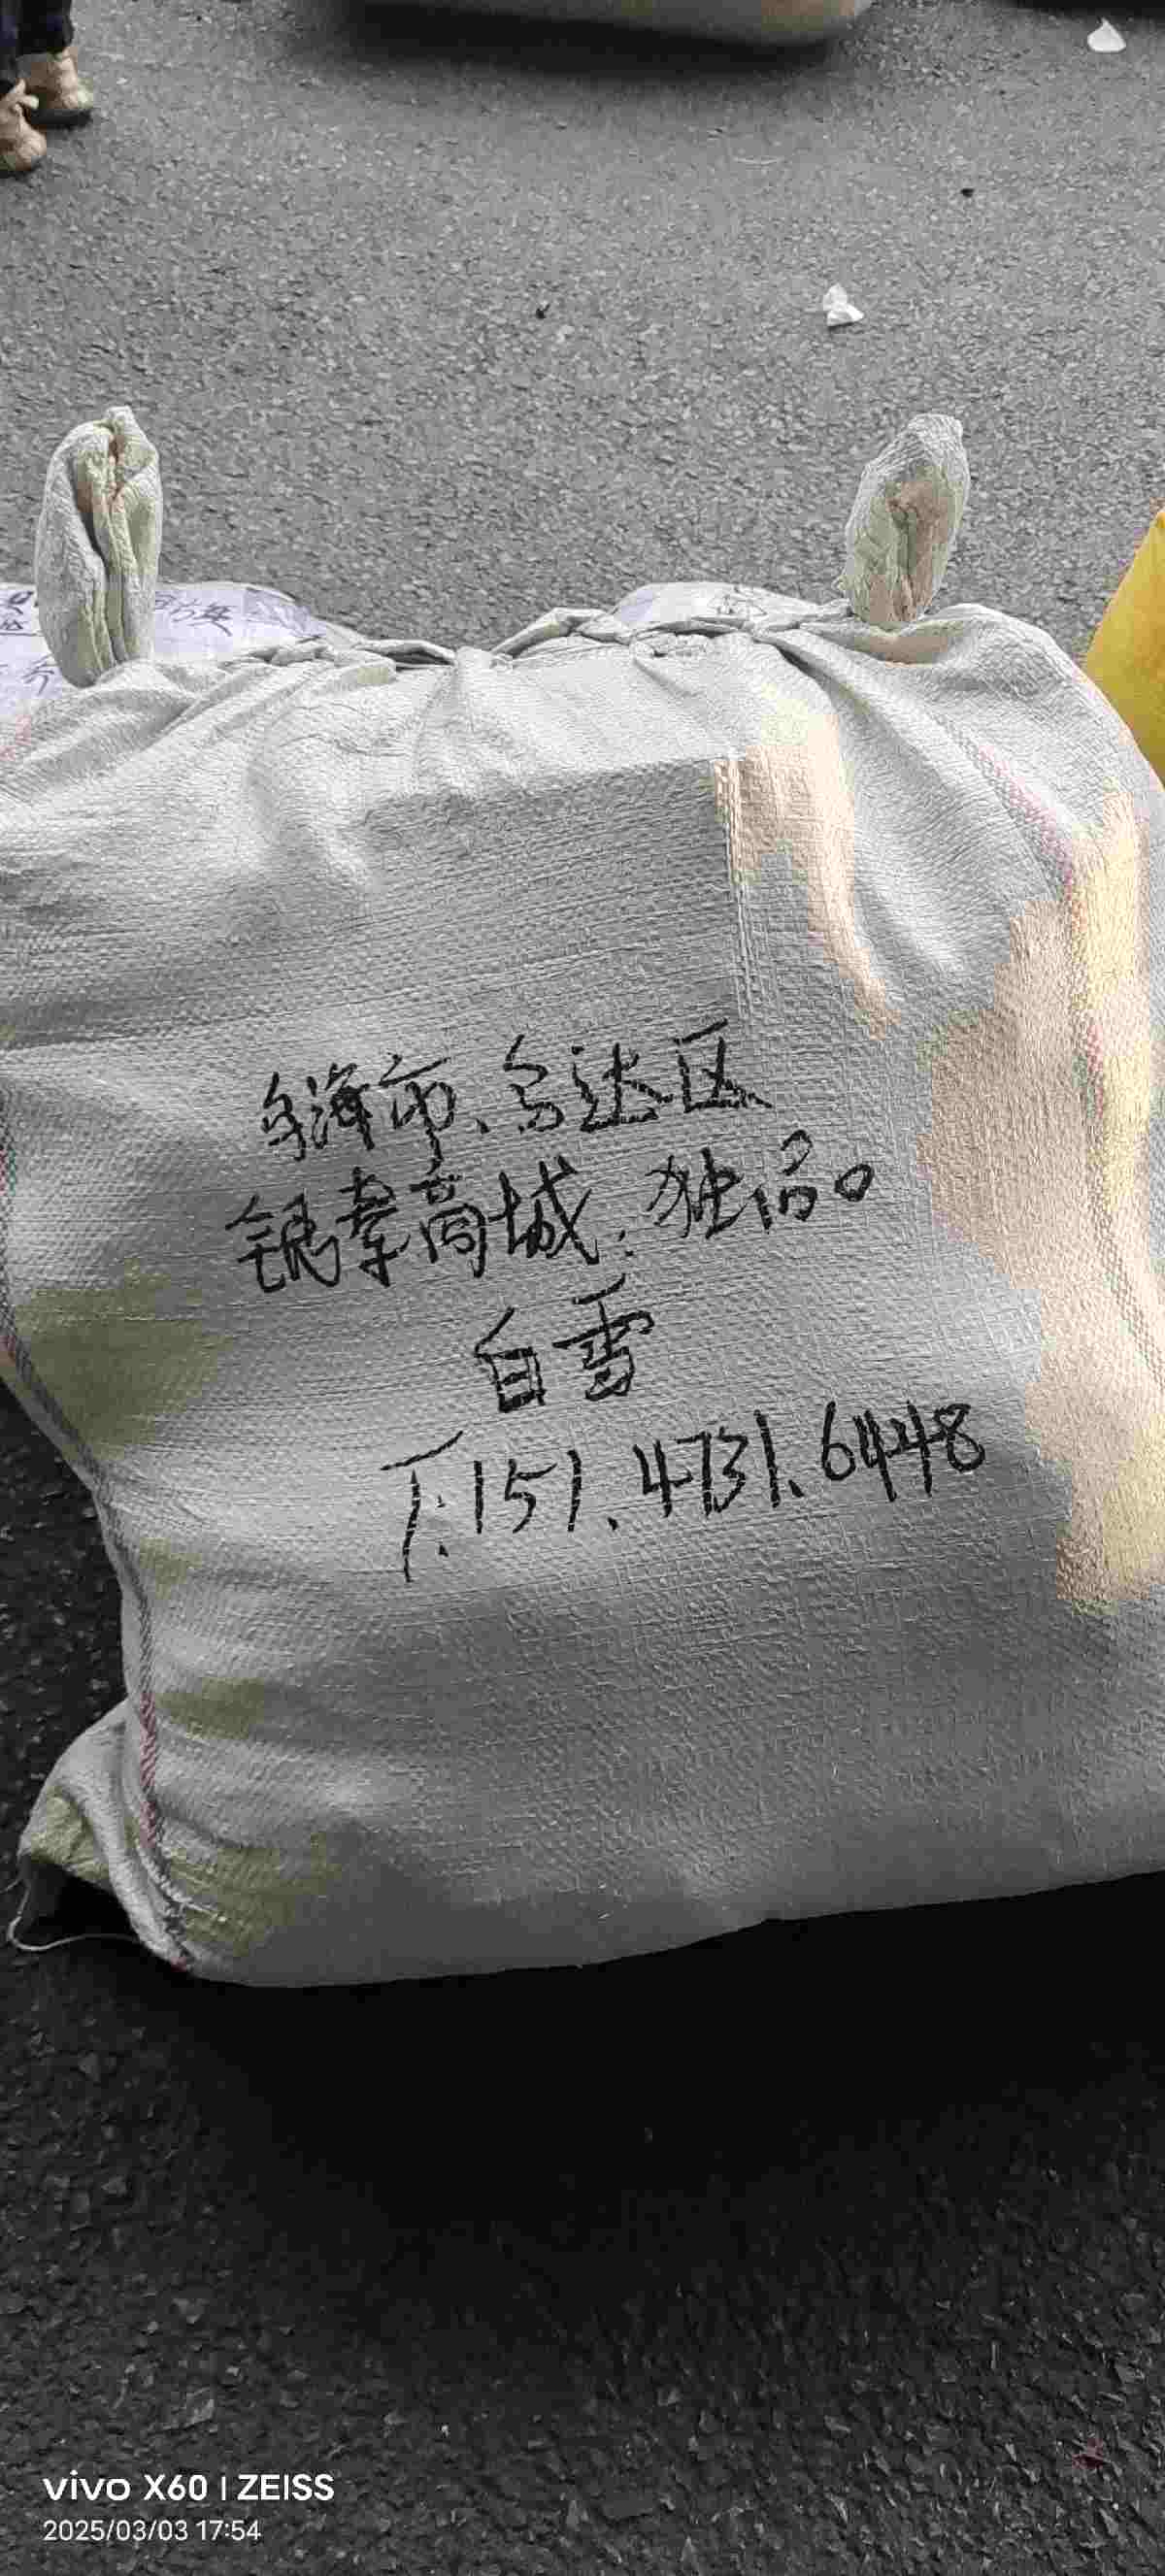 乌海市、乌达区
银泰商城：独品。
白雪
T:151.4731.6448
vivo X60 | ZEISS
2025/03/03 17:54